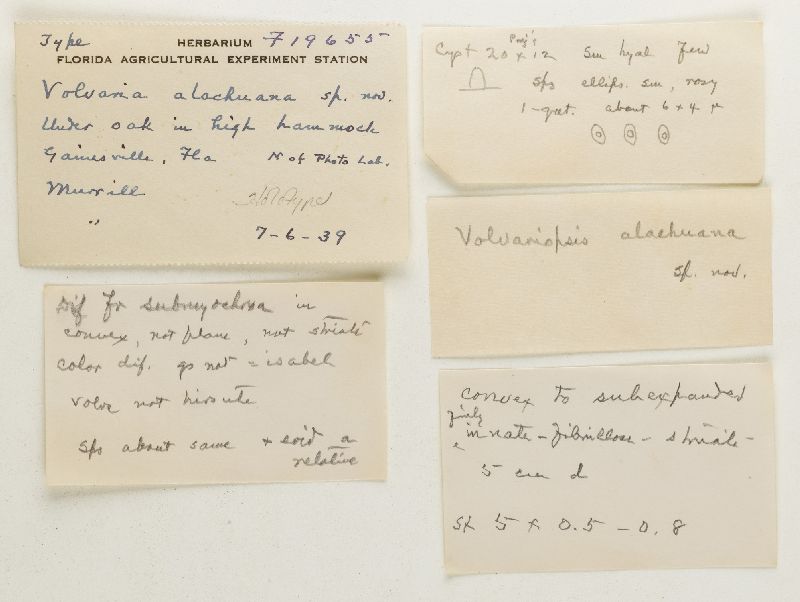 Type HERBARIUM F19655
FLORIDA AGRICULTURAL EXPERIMENT STATION
Volvaria alachuana sp. nov.
Under oak in high hammock
Gainesville, Fla N of Photo Lab.
Murrill
"
Holotype
7-6-39
Dif fr submyochroa in
convex, not plane, not striate
color dif. gs not = isabel
volva not hirsute
Sps about same + evid a
relative
Cyst 20 x 12 sm hyal few
sps ellips. sm, rosy
1-gut. about 6 x 4 µ
Volvariopsis alachuana
sp. nov.
convex to subexpanded
finely
innate-fibrillose-striate
5 cm d
St 5 x 0.5-0.8